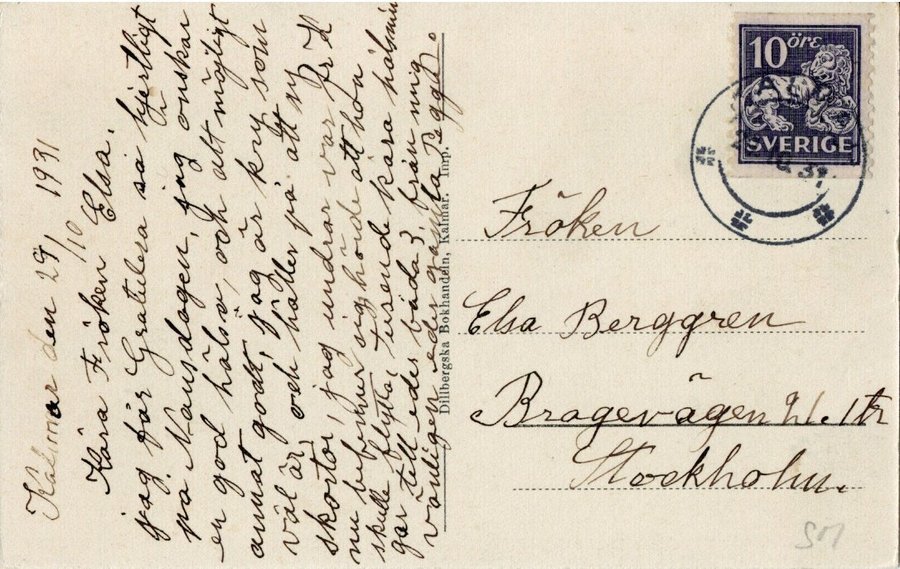 Kalmar den 29/10 1931
Kära Fröken Elsa.
jag får Gratulera så hjertligt
på Namsdagen, jag önskar
en god hälsa, och alt möjligt
annat godt, jag är kry som
väl är, och håller på att ny
skorta, jag undrar var Fr L
nu befinner sig, hörde att hon
skulle flytta, tusende kära hälsnin
gar till eder båda 3, från mig
vanligen eder gamla Pegge.
Dillbergska Bokhandeln, Kalmar. Imp.
10 öre
SVERIGE
Fröken
Elsa Berggren
Bragevägen 1tr
Stockholm.